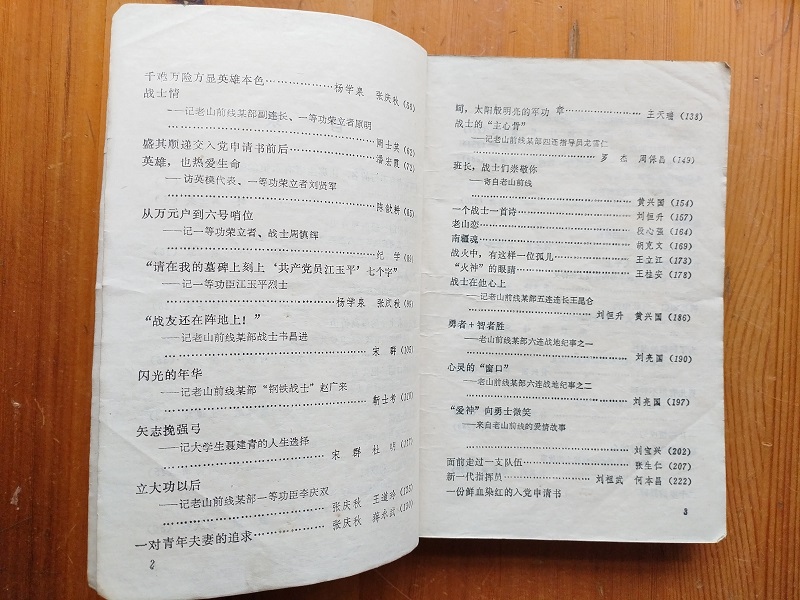 千难万险方显英雄本色………………杨学泉 张庆秋(58)
战士情
——记老山前线某部副连长、一等功荣立者原明
………………………………………周士英(62)
盛其顺递交入党申请书前后………………潘宏霞(72)
英雄，也热爱生命
——访英模代表、一等功荣立者刘贤军
………………………………………陈献耕(85)
从万元户到六号哨位
——记一等功荣立者、战士周慎辉
………………………………………纪 学
“请在我的墓碑上刻上‘共产党员江玉平’七个字”
——记一等功臣江玉平烈士
………………………………………杨学泉 张庆秋
“战友还在阵地上！”
——记老山前线某部战士韦昌进
………………………………………宋 群
闪光的年华
——记老山前线某部“钢铁战士”赵广来
………………………………………靳士考
矢志挽强弓
——记大学生聂建青的人生选择
………………………………………宋 群 杜 明
立大功以后
——记老山前线某部一等功臣李庆双
………………………………………张庆秋 王道玲
一对青年夫妻的追求………………张庆秋 蒋永武
2
呵，太阳般明亮的军功 章………………王天瑞(138)
战士的“主心骨”
——记老山前线某部四连指导员尤雷仁
………………………………………罗 杰 周保昌(149)
班长，战士们崇敬你
——寄自老山前线
………………………………………黄兴国(154)
一个战士一首诗………………刘恒升(157)
老山恋………………段心强(164)
南疆魂………………胡克文(169)
战火中，有这样一位孤儿………………王立江(173)
“火神”的眼睛………………王桂安(178)
战士在他心上
——记老山前线某部五连连长王昆仑
………………………………………刘恒升 黄兴国(186)
勇者+智者胜
——老山前线某部六连战地纪事之一
………………………………………刘亮国(190)
心灵的“窗口”
——老山前线某部六连战地纪事之二
………………………………………刘亮国(197)
“爱神”向勇士微笑
——来自老山前线的爱情故事
………………………………………刘宝兴(202)
面前走过一支队伍………………张生仁(207)
新一代指挥员………………刘祖武 何本昌(222)
一份鲜血染红的入党申请书
3